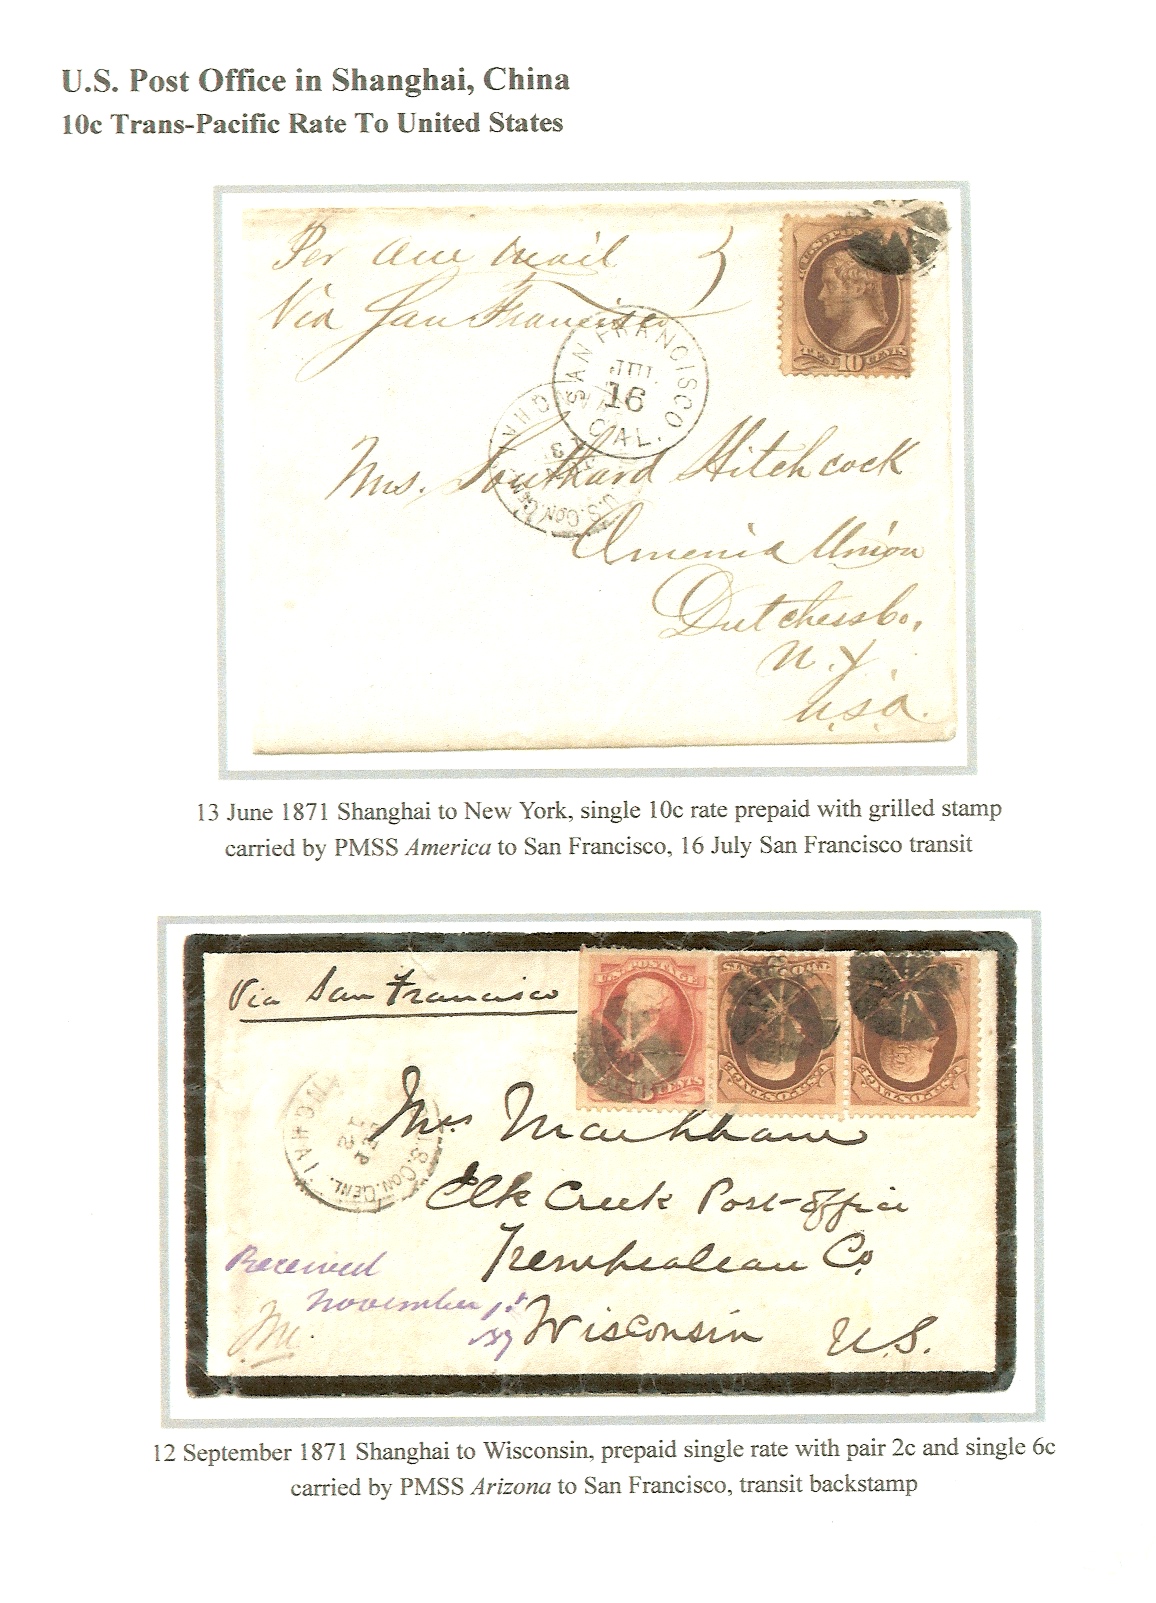 U.S. Post Office in Shanghai, China
10c Trans-Pacific Rate To United States
Per Am Mail
Via San Francisco
U.S. POSTAGE
TEN 10 CENTS
SAN FRANCISCO
JUL
16
CAL.
U.S. CON. GENL.
Mrs. Southard Hitchcock
Amenia Union
Dutchess Co,
N.Y.
U.S.A.
13 June 1871 Shanghai to New York, single 10c rate prepaid with grilled stamp
carried by PMSS America to San Francisco, 16 July San Francisco transit
Via San Francisco
U.S. POSTAGE
CENTS
U.S. CON. GENL.
SEP
12
Mrs Markham
Elk Creek Post-office
Trempealeau Co
Wisconsin U.S.
Received
November 1st
12 September 1871 Shanghai to Wisconsin, prepaid single rate with pair 2c and single 6c
carried by PMSS Arizona to San Francisco, transit backstamp